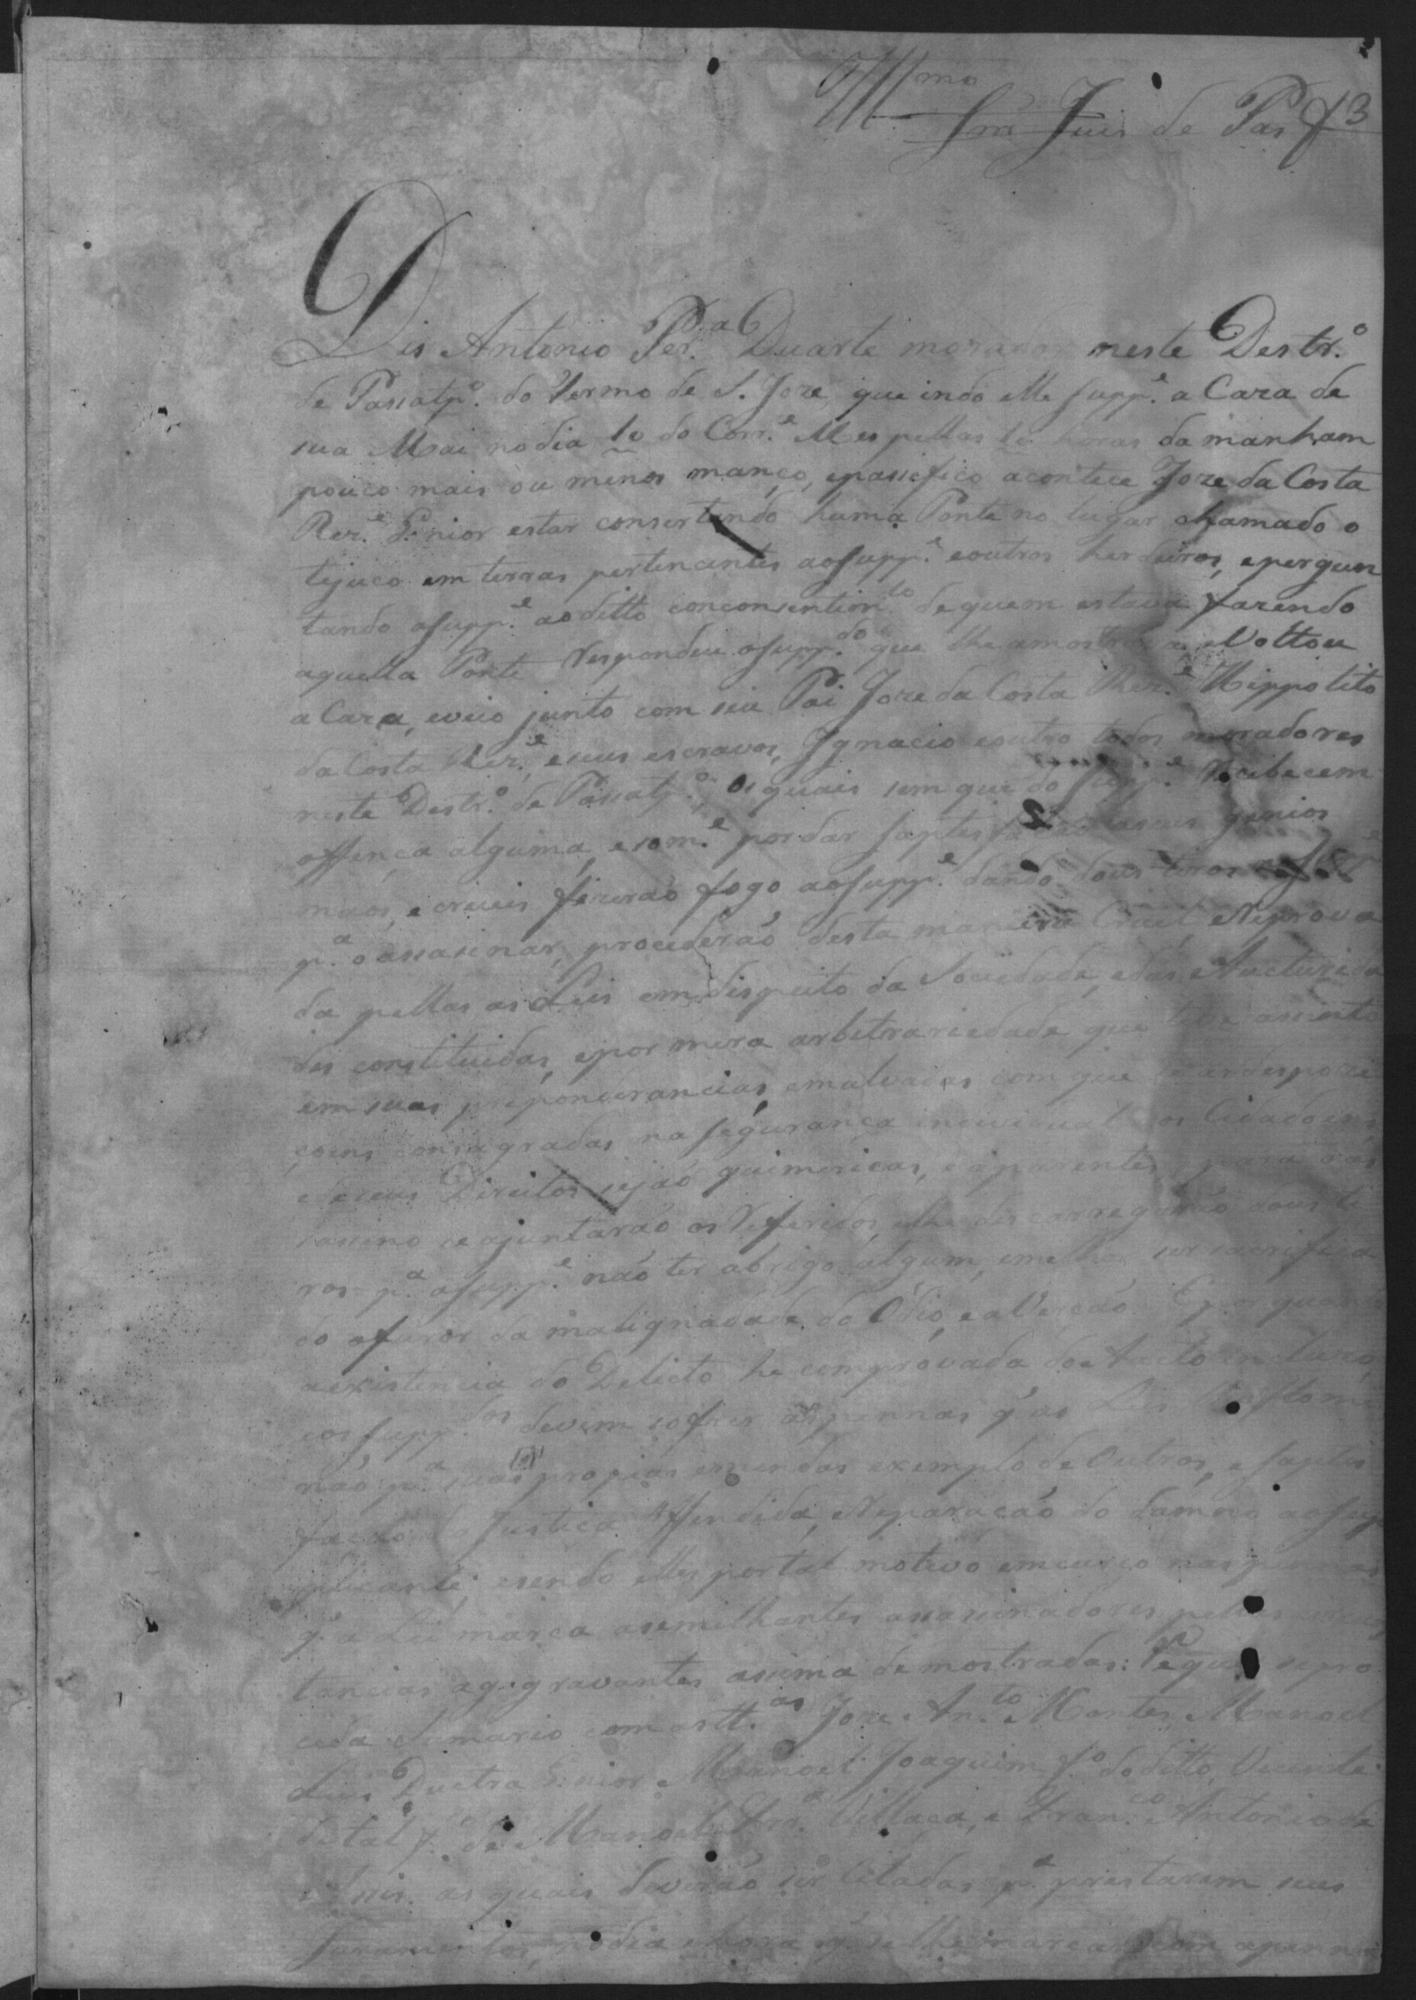 Illmo
Snr Juis de Pas f3
Dis Antonio Per.ª Duarte morador neste Destr.º
de Passatp.º do Termo de S. Joze, que indo elle supp.e a Caza de
sua Mai no dia 10 do Corr.e Mes pellas horas da manham
pouco mais ou menos manço, epassifico acontece Joze da Costa
Rez.e Senior estar consertando huma Ponte no lugar chamado o
tejuco em terras pertencentes aosupp.e eoutros herdeiros, epergun
tando osupp.e aoditto comconsentim.to dequem estava fazendo
aquella Ponte Respondeu osupp.do que lhe amostra e Voltou
a Caza, eveio junto com seu Pai Joze da Costa Rez.e Hippolito
da Costa Rez.e, eseus escravos, Ignacio eoutro todos moradores
neste Destr.º de Passatp.º, os quais sem que do supp.e Recebecem
offença alguma, esom.e por dar saptes aseus genios
máos, e crueis fizerão fogo aosupp.e dando dous tiros
p.ª oassasinar, procederão desta maneira Cruel, eReprova
da pellas as Leis em dispeito da Sociedade, edas Auctorida
des constituidas, epor mera arbitrariedade que teve assento
em suas preponderancias, emalvadas com que as despozi
çoens consagradas na segurança individual dos Cidadoens
edeseus Direitos sejão quimericas, e aparentes, para o as
sassino se ajuntarão os Referidos, elhe descarregarão dous ti
ros p.ª osupp.e não ter abrigo algum, emelhor ser sacrifica
do ofuror da malignadade, do Odio, eaVerção. Eporquanto
aexistencia do Delicto he comprovada do Aucto
eos supp.dos devem sofrer as pennas q' as Leis
não p.ª suas propias emendas exemplo de Outros, e saptis
fação da Justiça offendida, eReparação do damno aosup
plicante, esendo elles portal motivo emcurço nas pennas
q' a Lei marca asemilhantes assassinadores, pellas
tancias aggravantes assima demostradas: Requer sepro
ceda Sumario com as tt.as Joze An.to Montes, Manoel
Luis Duetra Senior, Manoel Joaquim f.º doditto, Vicente
detal f.º de Manoel Villaça, e Fran.co Antonio de
as quais deverão ser Citadas p.ª prestarem seus
Juramentos, nodia ehora q' selhe marcar com apenna